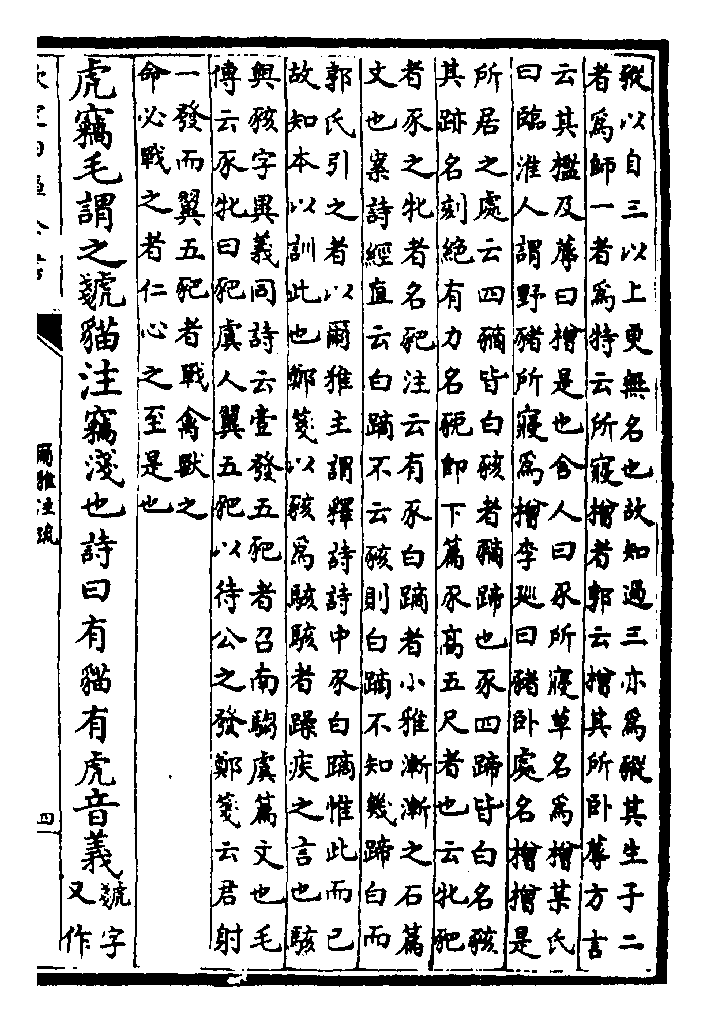 豵以自三以上更無名也故知過三亦為豵其生子二
者為師一者為特云所寢橧者郭云橧其所卧蓐方言
云其檻及蓐曰橧是也舍人曰豕所寢草名為橧某氏
曰臨淮人謂野豬所寢為橧李廵曰豬卧處名橧橧是
所居之處云四豴皆白豥者豴蹄也豕四蹄皆白名豥
其跡名刻絶有力名豟即下篇豕高五尺者也云牝豝
者豕之牝者名豝注云有豕白蹢者小雅漸漸之石篇
文也案詩經直云白蹢不云豥則白蹢不知幾蹄白而
郭氏引之者以爾雅主謂釋詩詩中豕白蹢惟此而已
故知本以訓此也鄭箋以豥為駭駭者躁疾之言也駭
與豥字異義同詩云壹發五豝者召南騶虞篇文也毛
傳云豕牝曰豝虞人翼五豝以待公之發鄭箋云君射
一發而翼五豝者戰禽獸之
命必戰之者仁心之至是也
虎竊毛謂之虦貓注竊淺也詩曰有貓有虎音義虦字
又作
爾雅注疏
四